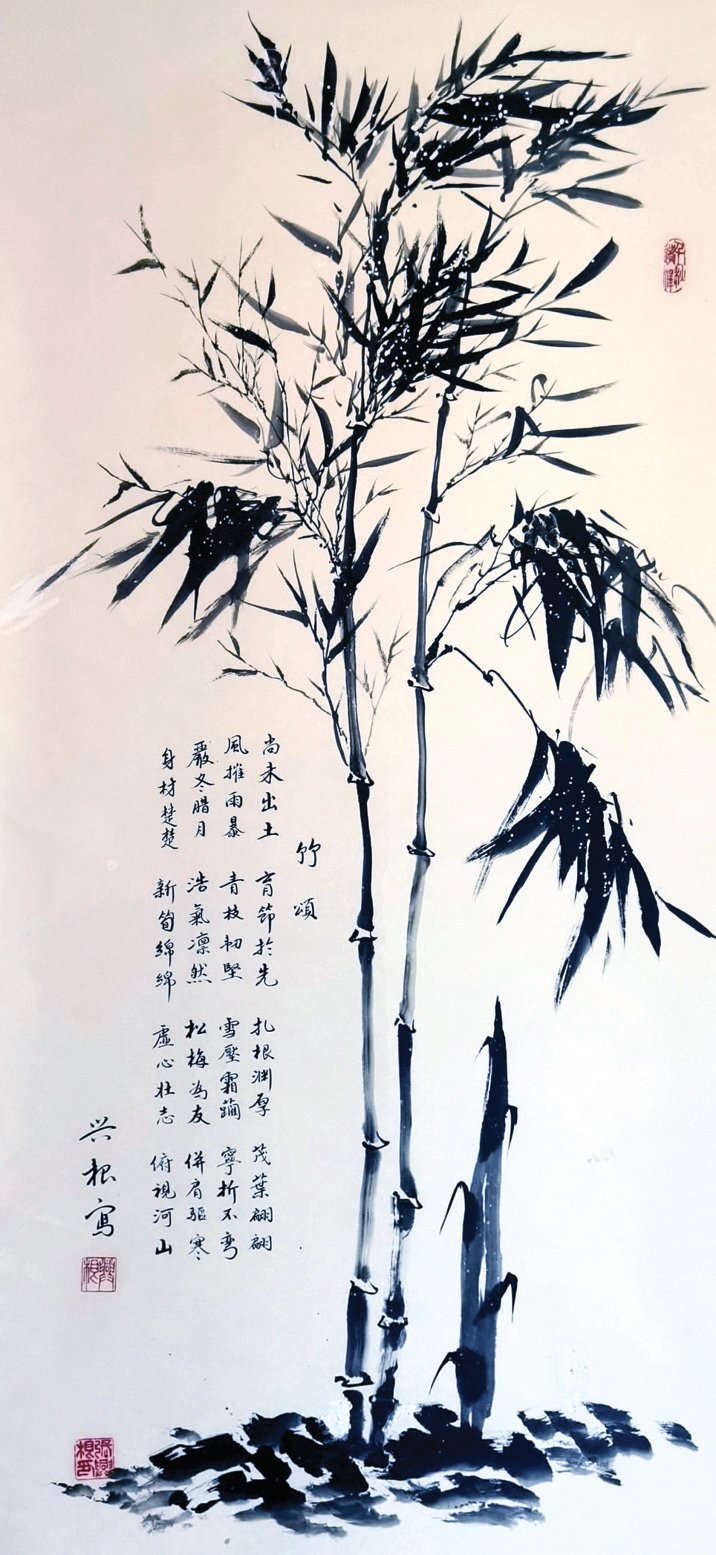 竹頌
尚未出土 育節於先 扎根渊厚 茂葉翩翩
風摧雨暴 青枝韧堅 雪壓霜 寧折不弯
嚴冬腊月 浩氣凛然 松梅為友 併肩驅寒
身材楚楚 新筍綿綿 虛心壮志 俯視河山
兴根寫
興根
張興根印